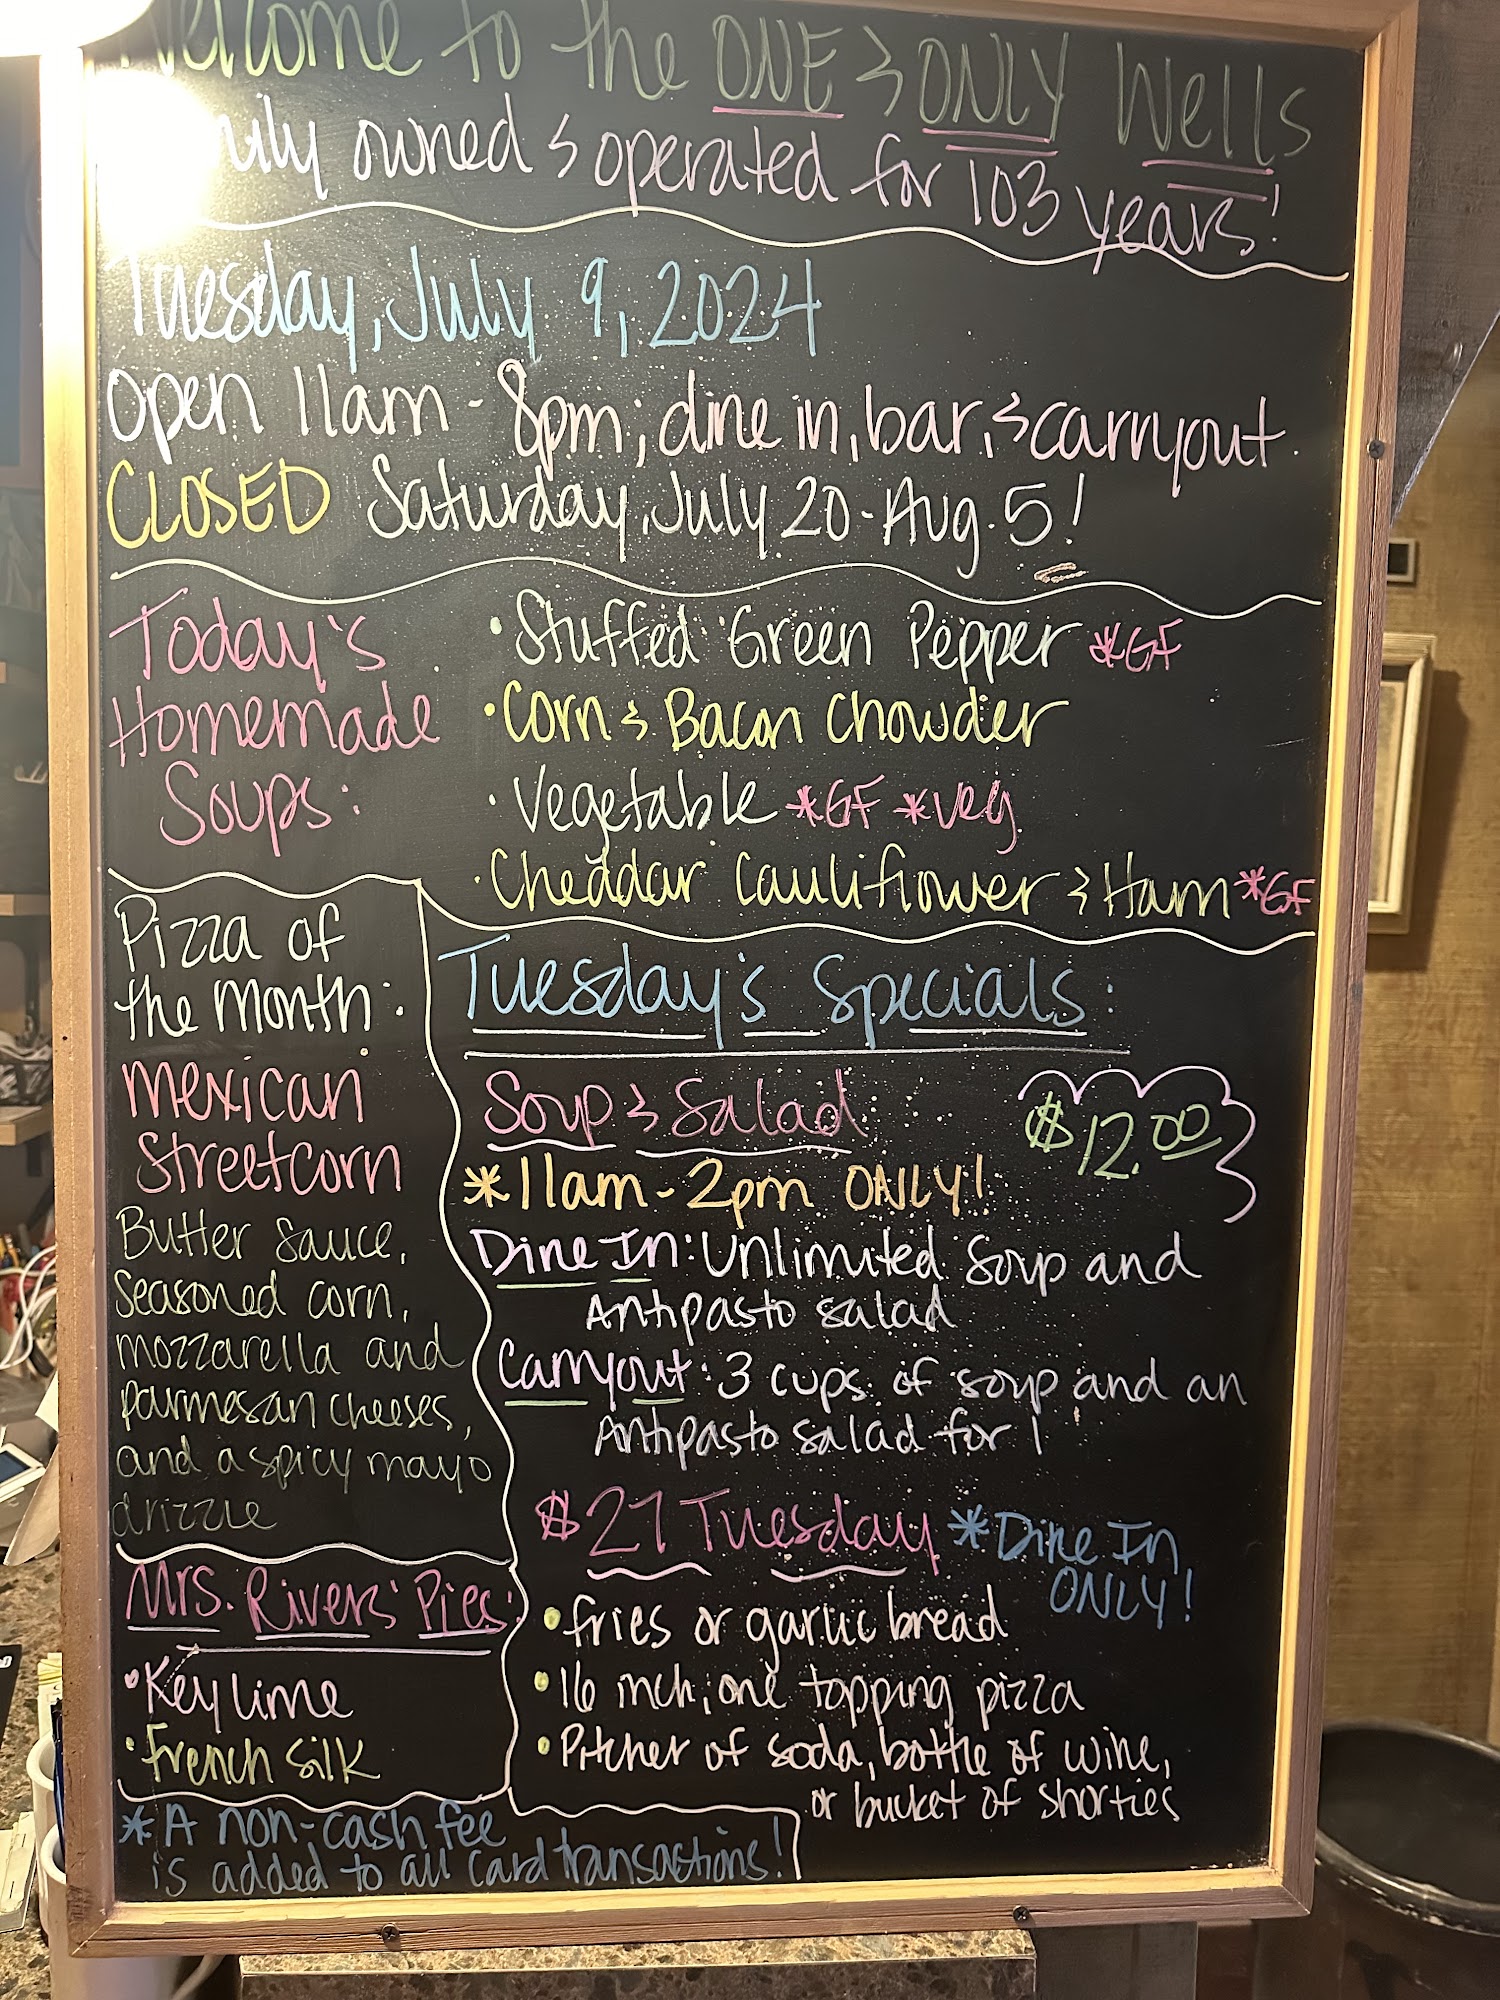 Welcome to the ONE & ONLY Wells
owned & operated for 103 years!
Tuesday, July 9, 2024
open 11am - 8pm; dine in, bar, & carryout.
CLOSED Saturday, July 20 - Aug. 5!
Today's
Homemade
Soups:
• Stuffed Green Pepper *GF
• Corn & Bacon Chowder
• Vegetable *GF *Veg
• Cheddar Cauliflower & Ham *GF
Pizza of
the Month:
Mexican
Streetcorn
Butter sauce,
seasoned corn,
mozzarella and
parmesan cheeses,
and a spicy mayo
drizzle
Mrs. Rivers' Pies:
• Key lime
• French Silk
Tuesday's Specials:
Soup & Salad $12.00
*11am - 2pm ONLY!
Dine In: Unlimited soup and
Antipasto salad
Carryout: 3 cups of soup and an
Antipasto salad for 1
$27 Tuesday *Dine In
ONLY!
• fries or garlic bread
• 16 inch, one topping pizza
• Pitcher of soda, bottle of wine,
or bucket of shorties
*A non-cash fee
is added to all card transactions!